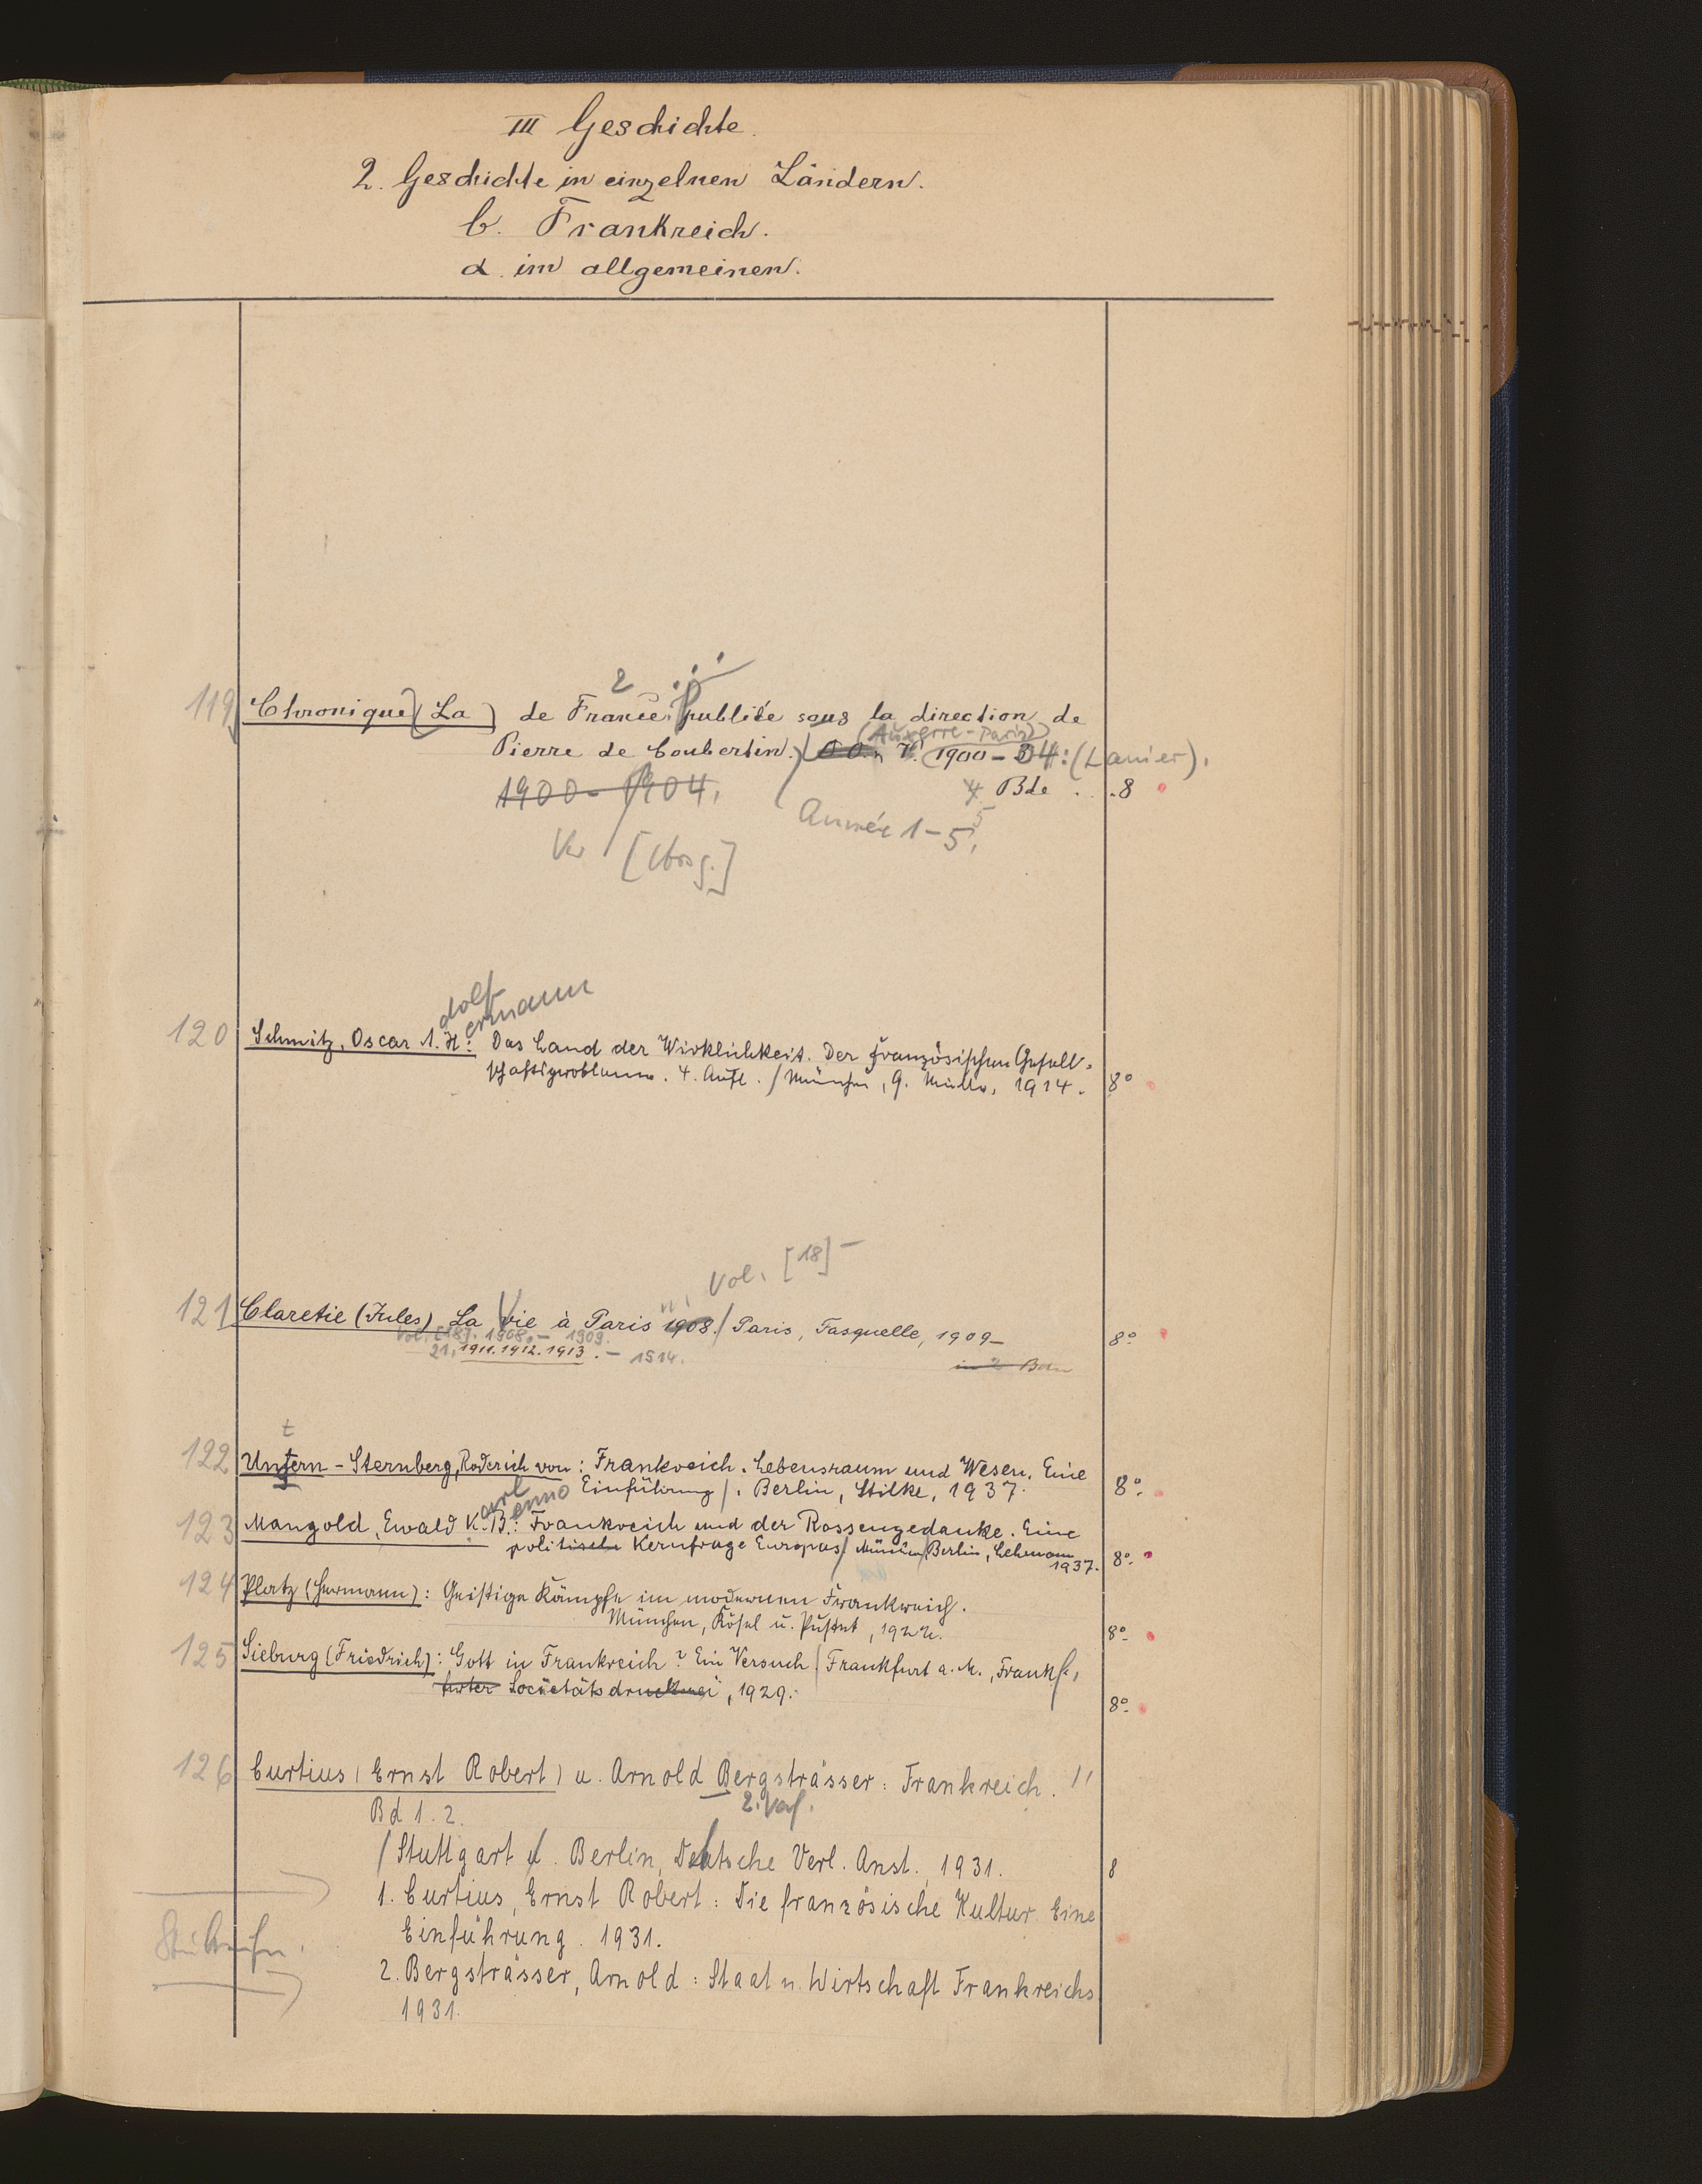 III Geschichte.
2. Geschichte in einzelnen Ländern.
b. Frankreich.
α. im allgemeinen.
2
119 Chronique (La) de France, publiée sous la direction de
(Auxerre-Paris)
Pierre de Coubertin.) 1900-04: (Lanier).
1900-1904. 4 Bde . . 8
Année 1-5, 5
[Hrsg.]
dolf ermann
120 Schmitz, Oscar A. H.: Das Land der Wirklichkeit. Der französischen Gesell-
schaftsprobleme. 4. Aufl. / München, G. Müller, 1914. 8°
Vol. [18] -
121 Claretie (Jules) La Vie à Paris 1908. / Paris, Fasquelle, 1909- 8°
Vol. [18]. 1908. - 1909.
21. 1911. 1912. 1913. - 1914. in 2 Bdn
t
122 Ungern-Sternberg, Roderich von: Frankreich. Lebensraum und Wesen. Eine
Einführung /. Berlin, Stilke, 1937. 8°
arl enno
123 Mangold, Ewald K. B.: Frankreich und der Rassengedanke. Eine
politische Kernfrage Europas / München / Berlin, Lehmann
1937. 8°
124 Platz (Hermann): Geistige Kämpfe im modernen Frankreich.
München, Kösel u. Pustet, 1922. 8°
125 Sieburg (Friedrich): Gott in Frankreich? Ein Versuch / Frankfurt a. M., Frankf.
furter Societätsdruckerei, 1929. 8°
126 Curtius (Ernst Robert) u. Arnold Bergsträsser: Frankreich. //
Bd 1. 2. 2. Verf.
/ Stuttgart u. Berlin, Deutsche Verl. Anst., 1931. 8
1. Curtius, Ernst Robert: Die französische Kultur. Eine
Einführung. 1931.
2. Bergsträsser, Arnold: Staat u. Wirtschaft Frankreichs
1931.